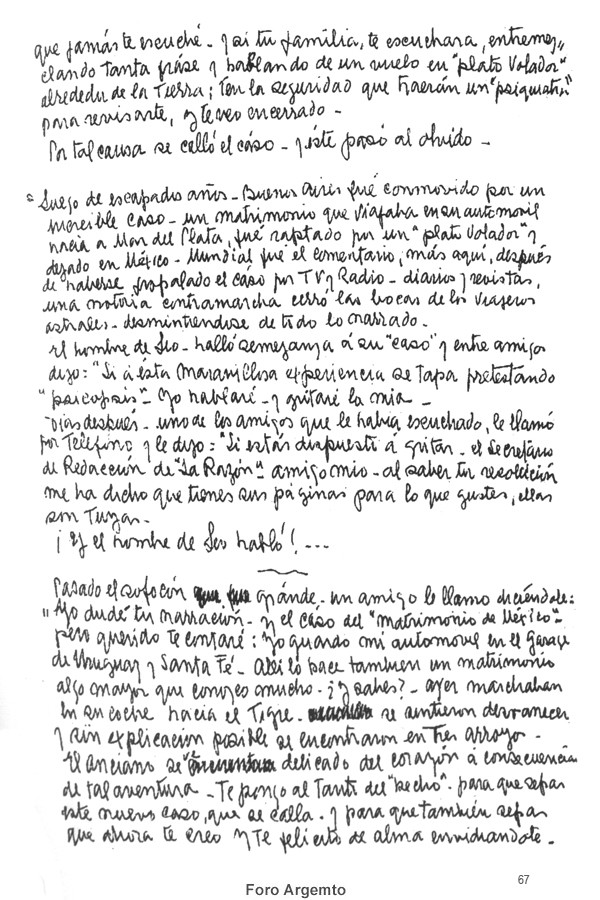 que jamás te escuché - y si tu familia, te escuchara, entremez,,
clando tanta fráse y hablando de un vuelo en "plato Volador"
alrededor de la Tierra; ten la seguridad que traerán un "psiquiatra"
para revisarte, y te veo encerrado -
Por tal causa se calló el cáso - y éste pasó al olvido -
Luego de escapados años - Buenos Aires fué conmovido por un
increible caso - un matrimonio que viajaba en su automovil
hacia a Mar del Plata, fué raptado por un "plato Volador" y
dejado en México - Mundial fué el comentario, más aquí, después
de haberse propalado el cáso por TV y Radio - diarios y revistas,
una notoria contramarcha cerró las bocas de los viajeros
astrales - desmintiendose de todo lo narrado -
El hombre de Leo - halló semejanza á su "caso" y entre amigos
dijo: "Si á ésta maravillosa experiencia se tapa pretestando
"psicopsis" - Yo hablaré - y gritaré la mia -
Dias después - uno de los amigos que le había escuchado, le llamó
por Teléfono y le dijo: "Si estás dispuesto á gritar - el Secretario
de Redacción de "La Razón" - amigo mio - al saber tu resolución
me ha dicho que tienes sus páginas para lo que gustes, ellas
son Tuyas -
¡Y el hombre de Leo habló! - - -
Pasado el sofocón gránde - un amigo le llamo diciéndole:
"Yo dudé tu narración - y el cáso del "matrimonio de México" -
pero querido te contaré: Yo guardo mi automovil en el Garage
de Uruguay y Santa Fé - Alli lo hace tambien un matrimonio
algo mayor que conozco mucho - ¿y sabes? - ayer marchaban
en su coche hacia el Tigre - se sintieron desvanecer
y sin explicación posible se encontraron en Tres Arroyo -
El anciano se encuentra delicado del corazón á consecuencia
de tal aventura - Te pongo al Tanto del "hecho" - para que sepas
este nuevo caso, que se calla - y para que también sepas
que ahora te creo y Te felicito de alma envidiandote -
67
Foro Argemto